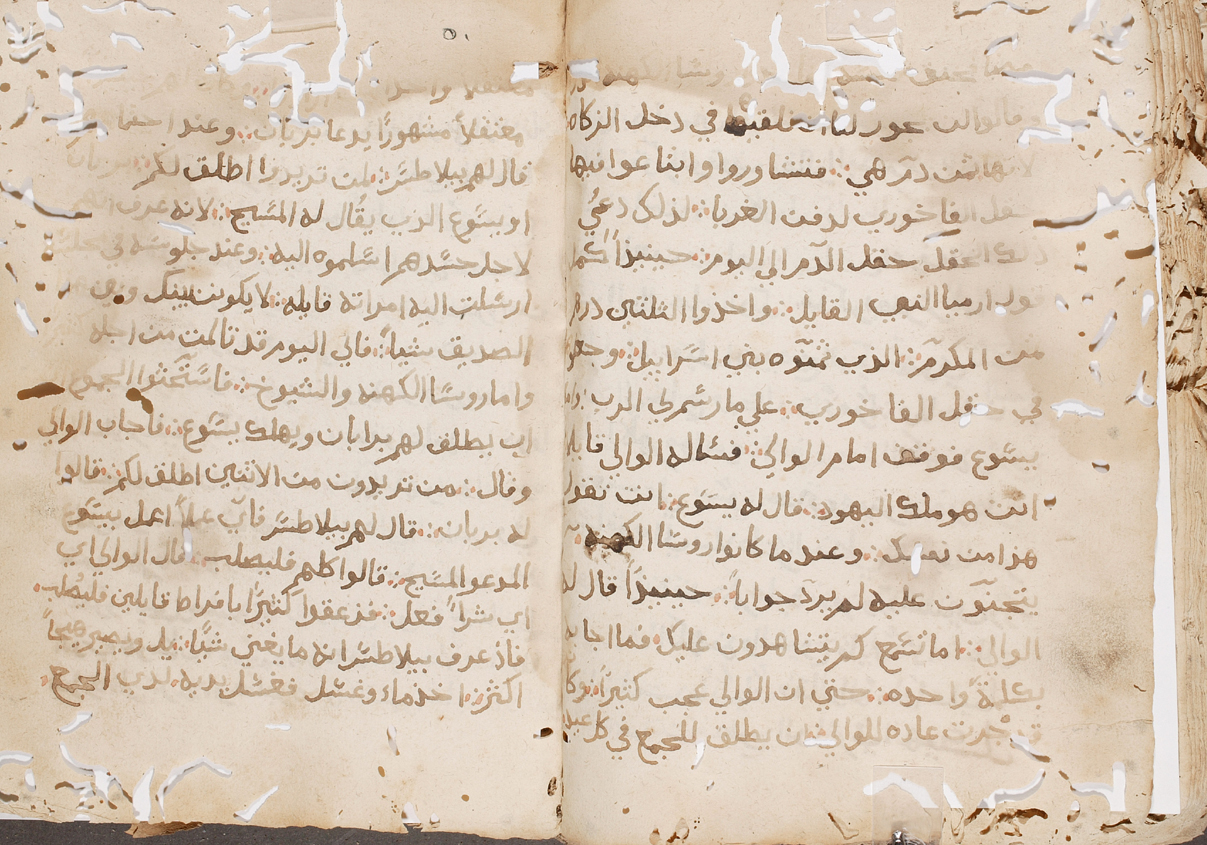 وقالوا لن يجوز لنا ان نلقيها في دخل الزكاه
لانها ثمن دم هي فتشاوروا وابتاعوا بها
حقل الفاخوري لدفن الغربا لذلك دعي
ذلك الحقل حقل الدم الي اليوم حينيذا كمل
قول ارميا النبي القايل واخذوا الثلثين درهم
من المكرم الذي ثمنوه بني اسراييل وجعلوا
في حقل الفاخوري علي ما رسم لي الرب
يسوع فوقف امام الوالي فساله الوالي قايلا
انت هو ملك اليهود قال له يسوع انت تقول
هذا من نفسك وعند ما كانوا روسا الكهنه
يتجنون عليه لم يرد جوابا حينيذا قال له
الوالي اما تسمع كم يشاهدون عليك فما اجابه
بكلمة واحده حتي ان الوالي عجب كثيرا وكان
قد جرت عاده للوالي ان يطلق للجمع في كل عيد
معتقلا مشهورا يدعا بربان وعند احفا
قال لهم بيلاطس من تريدوا اطلق لكم بربان
او يسوع الذي يقال له المسيح لانه عرف انهم
لاجل حسدهم اسلموه اليه وعند جلوسه في مجلس
ارسلت اليه امراته قايله لا يكونن بينك وبين
الصديق شيا فاني اليوم قد تالمت من اجله
واما روسا الكهنه والشيوخ فاستحثوا الجموع
ان يطلق لهم برابان ويهلك يسوع فاجاب الوالي
وقال من تريدون من الاتنين اطلق لكم قالوا
له بربان قال لهم بيلاطس فاي عملا اعمل بيسوع
المدعو المسيح قالوا كلهم فليصلب قال الوالي اي
اي شرا فعل فزعقوا كثيرا بافراط قايلين فليصلب
فاذ عرف بيلاطس انه ما يغني شيا بل ويصير هيجا
اكثر اخذ ماء وغسل فغسل يديه لدي الجمع